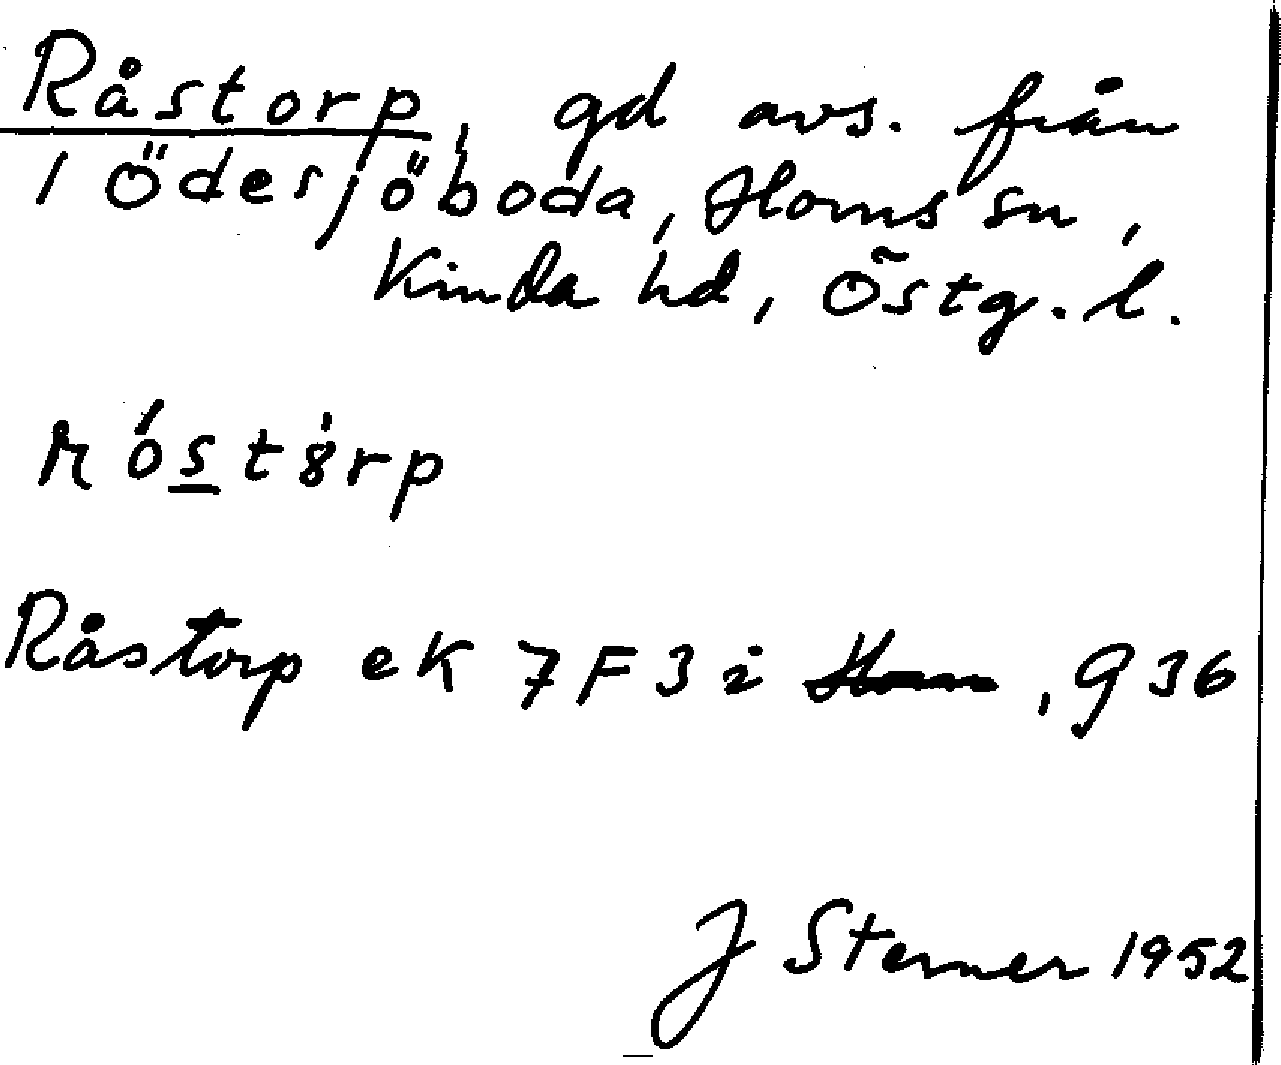 Råstorp, gd avs. från
1 Ödesjöboda, Horns sn,
Kinda hd, Östg. l.
róstörp
Råstorp ek 7F3i Horn, 936
J Sterner 1952